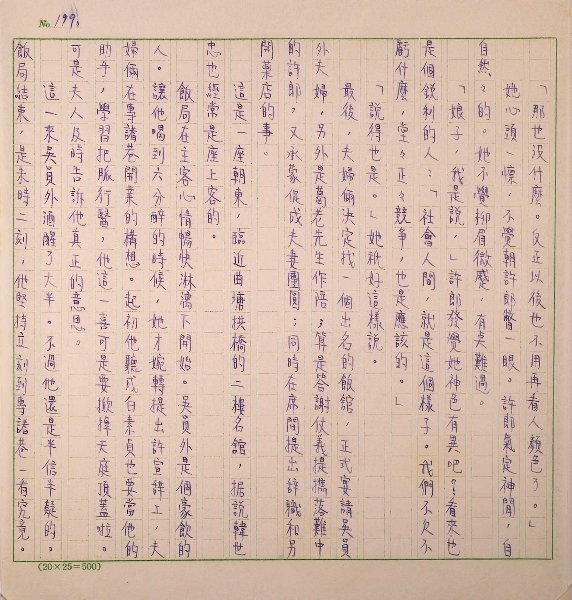 No. 199.
「那也沒什麼。反正以後也不用再看人顏色了。」
她心頭一懍，不覺朝許郎瞥一眼。許郎氣定神閒，自
自然々的。她不覺柳眉微蹙，有点難過。
「娘子，我是說，」許郎發覺她神色有異吧？看來他
是個銳利的人：「社會人間，就是這個樣子。我們不欠不
虧什麼，堂々正々競爭，也是應該的。」
「說得也是。」她祇好這樣說。
最後，夫婦倆決定找一個出名的飯館，正式宴請吳員
外夫婦，另外是葛老先生作陪；算是答謝仗義提攜落難中
的許郎，又承蒙促成夫妻團圓；同時在席間提出辭職和另
開藥店的事。
這是一座朝東，臨近曲塘拱橋的二樓名館，据說韓世
忠也經常是座上客的。
飯局在主客心情暢快淋漓下開始。吳員外是個豪飲的
人。讓他喝到六分醉的時候，她才婉轉提出許宣辭工，夫
婦倆在專諸巷開業的構想。起初他聽成白素貞也要當他的
助手，學習把脈行醫，他這一喜可是要掀掉天庭頂蓋啦。
可是夫人及時告訴他真正的意思。
這一來吳員外酒醒了大半。不過他還是半信半疑的。
飯局結束，是未時二刻，他堅持立刻到專諸巷一看究竟。
(20×25=500)